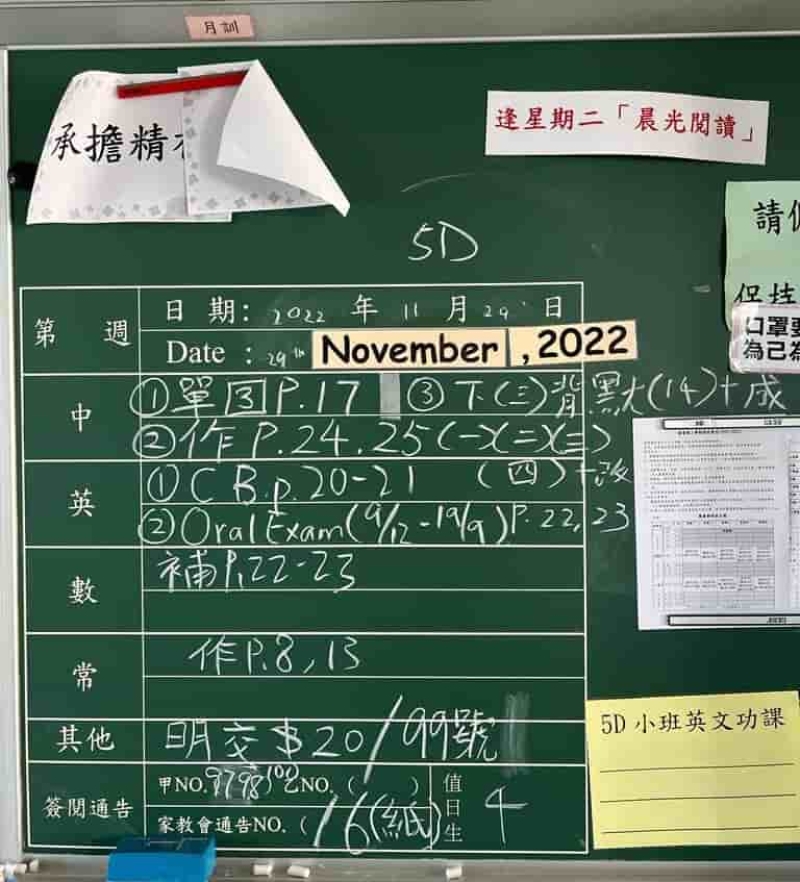 月訓
承擔精
逢星期二「晨光閱讀」
請
保持
口罩要
為己為
5D
第 週
日 期: 2022 年 11 月 29 日
Date : 29th November , 2022
中
①單図P.17 ③下(三)背默(14)+成
②作 P.24.25(一)(二)(三)
英
①C B.p.20-21 (四)+改
②Oral Exam(9/12-19/9)P.22,23
數
補P.22-23
常
作P.8,13
其他
明交$20/99號
簽閱通告
甲NO. 乙NO.( )
家教會通告NO.(16(紙)
值日生 4
5D 小班英文功課